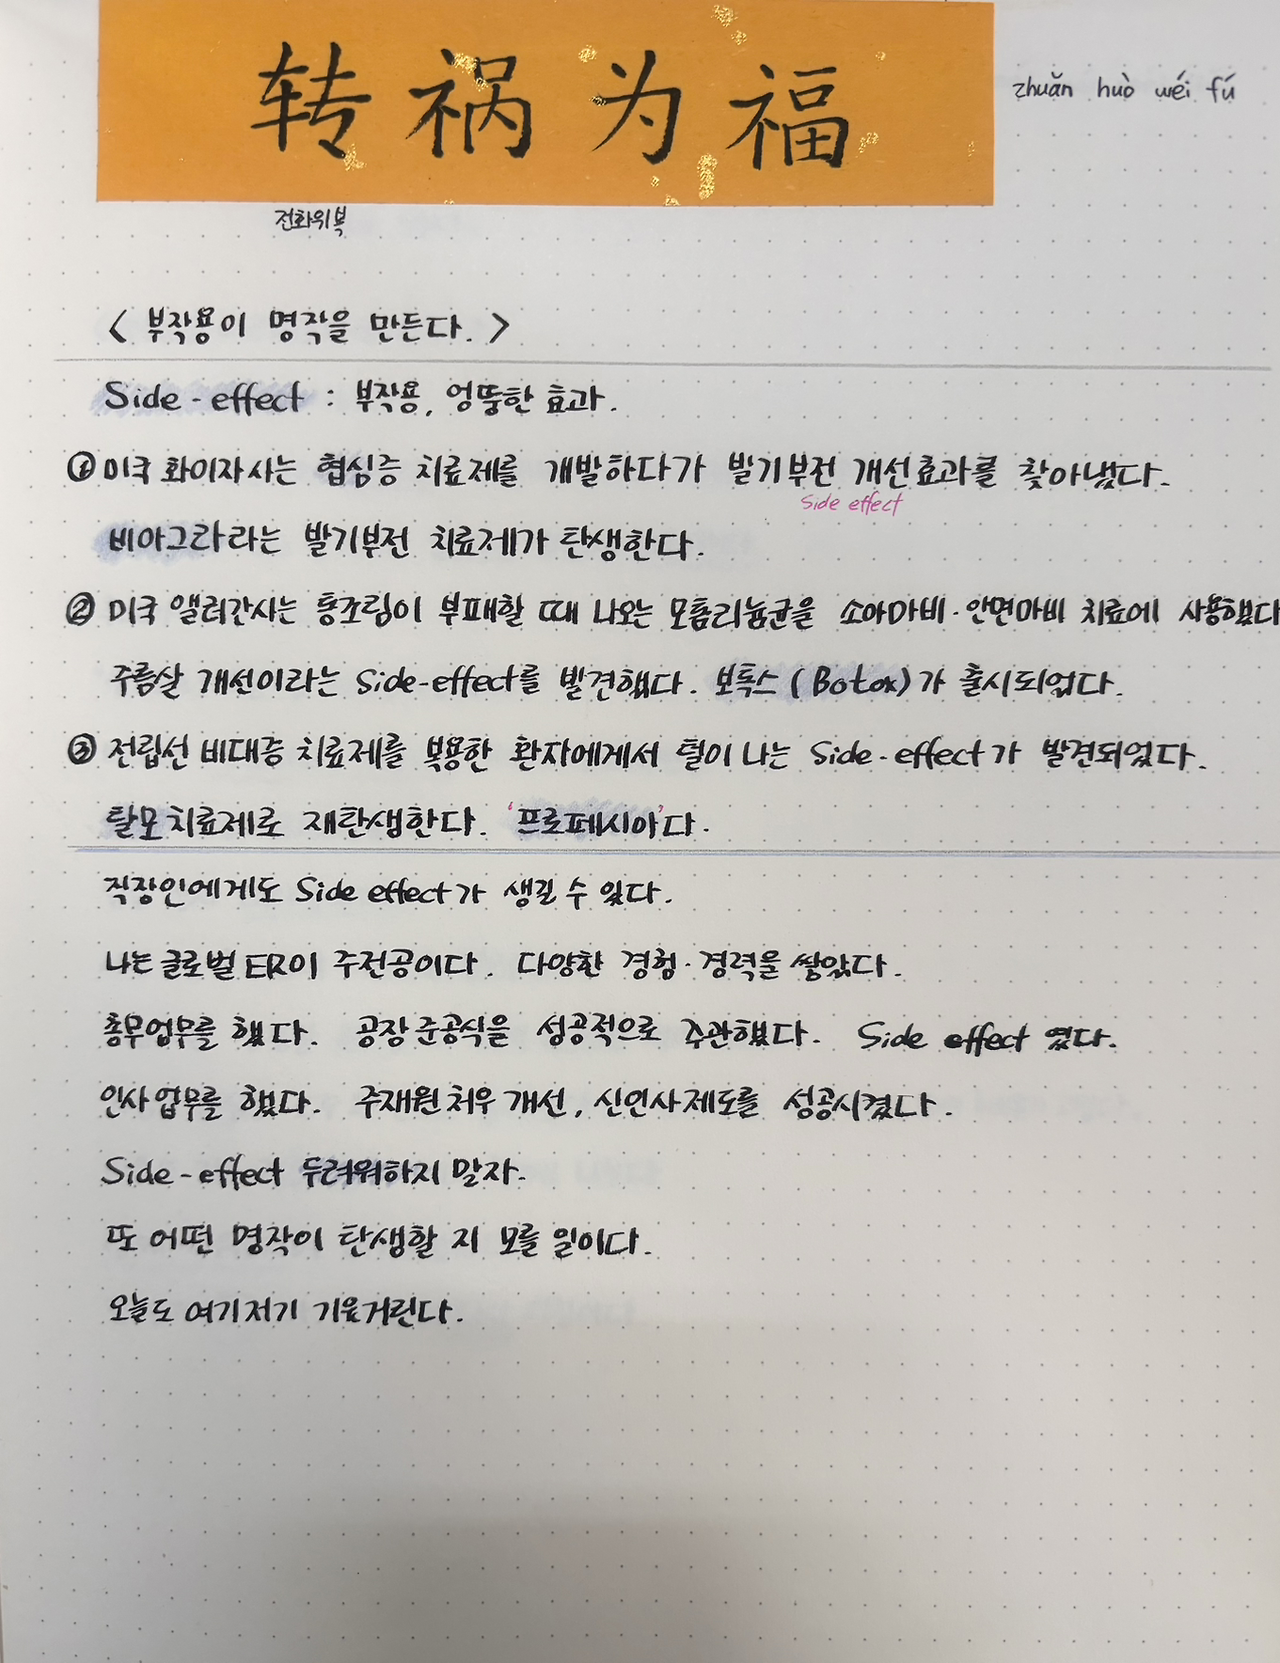 转祸为福
zhuǎn huò wéi fú
전화위복
< 부작용이 명작을 만든다. >
Side-effect : 부작용, 엉뚱한 효과.
① 미국 화이자사는 협심증 치료제를 개발하다가 발기부전 개선효과를 찾아냈다.
side effect
비아그라라는 발기부전 치료제가 탄생한다.
② 미국 앨러간사는 통조림이 부패할 때 나오는 모톨리늄균을 소아마비·안면마비 치료에 사용했다
주름살 개선이라는 Side-effect를 발견했다. 보톡스 (Botox)가 출시되었다.
③ 전립선 비대증 치료제를 복용한 환자에게서 털이 나는 Side-effect가 발견되었다.
탈모치료제로 재탄생한다. '프로페시아'다.
직장인에게도 Side effect가 생길 수 있다.
나는 글로벌 ER이 주전공이다. 다양한 경험·경력을 쌓았다.
총무업무를 했다. 공장준공식을 성공적으로 주관했다. Side effect 였다.
인사업무를 했다. 주재원처우개선, 신인사제도를 성공시켰다.
Side-effect 두려워하지 말자.
또 어떤 명작이 탄생할 지 모를 일이다.
오늘도 여기저기 기웃거린다.